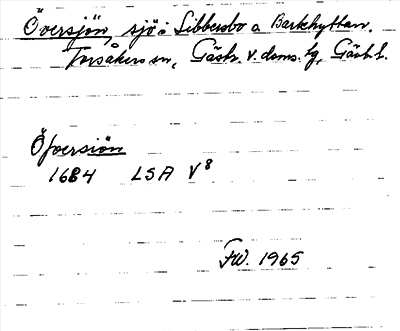 Översjön, sjö i Sibbersbo o Barkhyttan.
Torsåkers sn, Gästr. v. doms. tg, Gävl. l.
Öfversiön
1684 LSA V8
FW. 1965